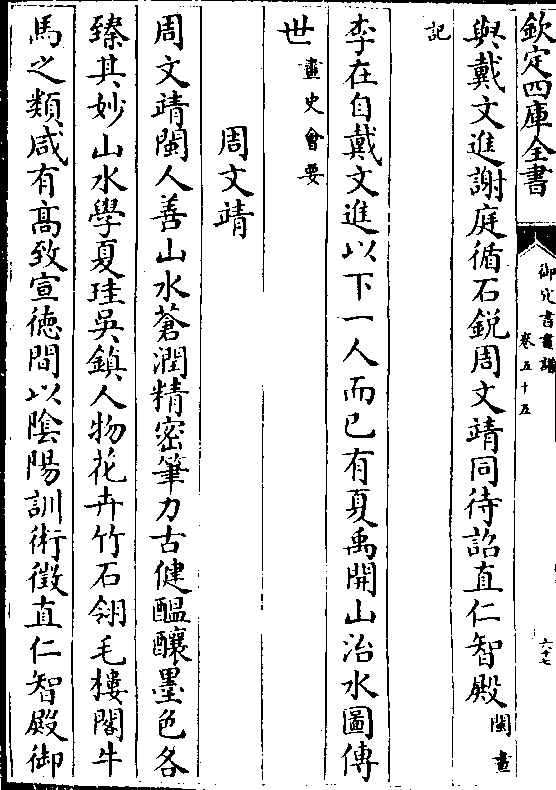 欽定四庫全書
御定書畫譜
卷五十五
六十七
與戴文進謝庭循石鋭周文靖同待詔直仁智殿閩畫
記
李在自戴文進以下一人而已有夏禹開山治水圖傳
世畫史會要
周文靖
周文靖閩人善山水蒼潤精密筆力古健醖釀墨色各
臻其妙山水學夏珪吳鎮人物花卉竹石翎毛樓閣牛
馬之類咸有高致宣徳間以陰陽訓術徴直仁智殿御